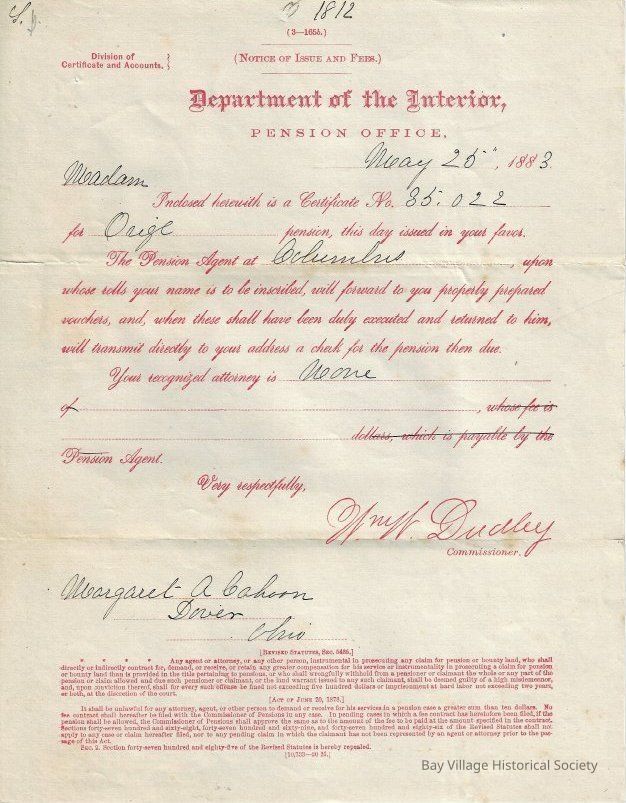 1812
(3—165b.)
Division of
Certificate and Accounts.
(Notice of Issue and Fees.)
Department of the Interior,
PENSION OFFICE,
May 25", 1883
Madam
Inclosed herewith is a Certificate No. 35.022
for Origl pension, this day issued in your favor.
The Pension Agent at Columbus, upon
whose rolls your name is to be inscribed, will forward to you properly prepared
vouchers, and, when these shall have been duly executed and returned to him,
will transmit directly to your address a check for the pension then due.
Your recognized attorney is None
of , whose fee is
dollars, which is payable by the
Pension Agent.
Very respectfully,
Wm W. Dudley
Commissioner.
Margaret A Cahoon
Dover
Ohio
[Revised Statutes, Sec. 5485.]
* * * * Any agent or attorney, or any other person, instrumental in prosecuting any claim for pension or bounty land, who shall
directly or indirectly contract for, demand, or receive, or retain any greater compensation for his service or instrumentality in prosecuting a claim for pension
or bounty land than is provided in the title pertaining to pensions, or who shall wrongfully withhold from a pensioner or claimant the whole or any part of the
pension or claim allowed and due such pensioner or claimant, or the land warrant issued to any such claimant, shall be deemed guilty of a high misdemeanor,
and, upon conviction thereof, shall for every such offense be fined not exceeding five hundred dollars or imprisonment at hard labor not exceeding two years,
or both, at the discretion of the court.
[Act of June 20, 1878.]
It shall be unlawful for any attorney, agent, or other person to demand or receive for his services in a pension case a greater sum than ten dollars. No
fee contract shall hereafter be filed with the Commissioner of Pensions in any case. In pending cases in which a fee contract has heretofore been filed, if the
pension shall be allowed, the Commissioner of Pensions shall approve the same as to the amount of the fee to be paid at the amount specified in the contract.
Sections forty-seven hundred and sixty-eight, forty-seven hundred and sixty-nine, and forty-seven hundred and eighty-six of the Revised Statutes shall not
apply to any case or claim hereafter filed, nor to any pending claim in which the claimant has not been represented by an agent or attorney prior to the pas-
sage of this Act.
Sec. 2. Section forty-seven hundred and eighty-five of the Revised Statutes is hereby repealed.
Bay Village Historical Society